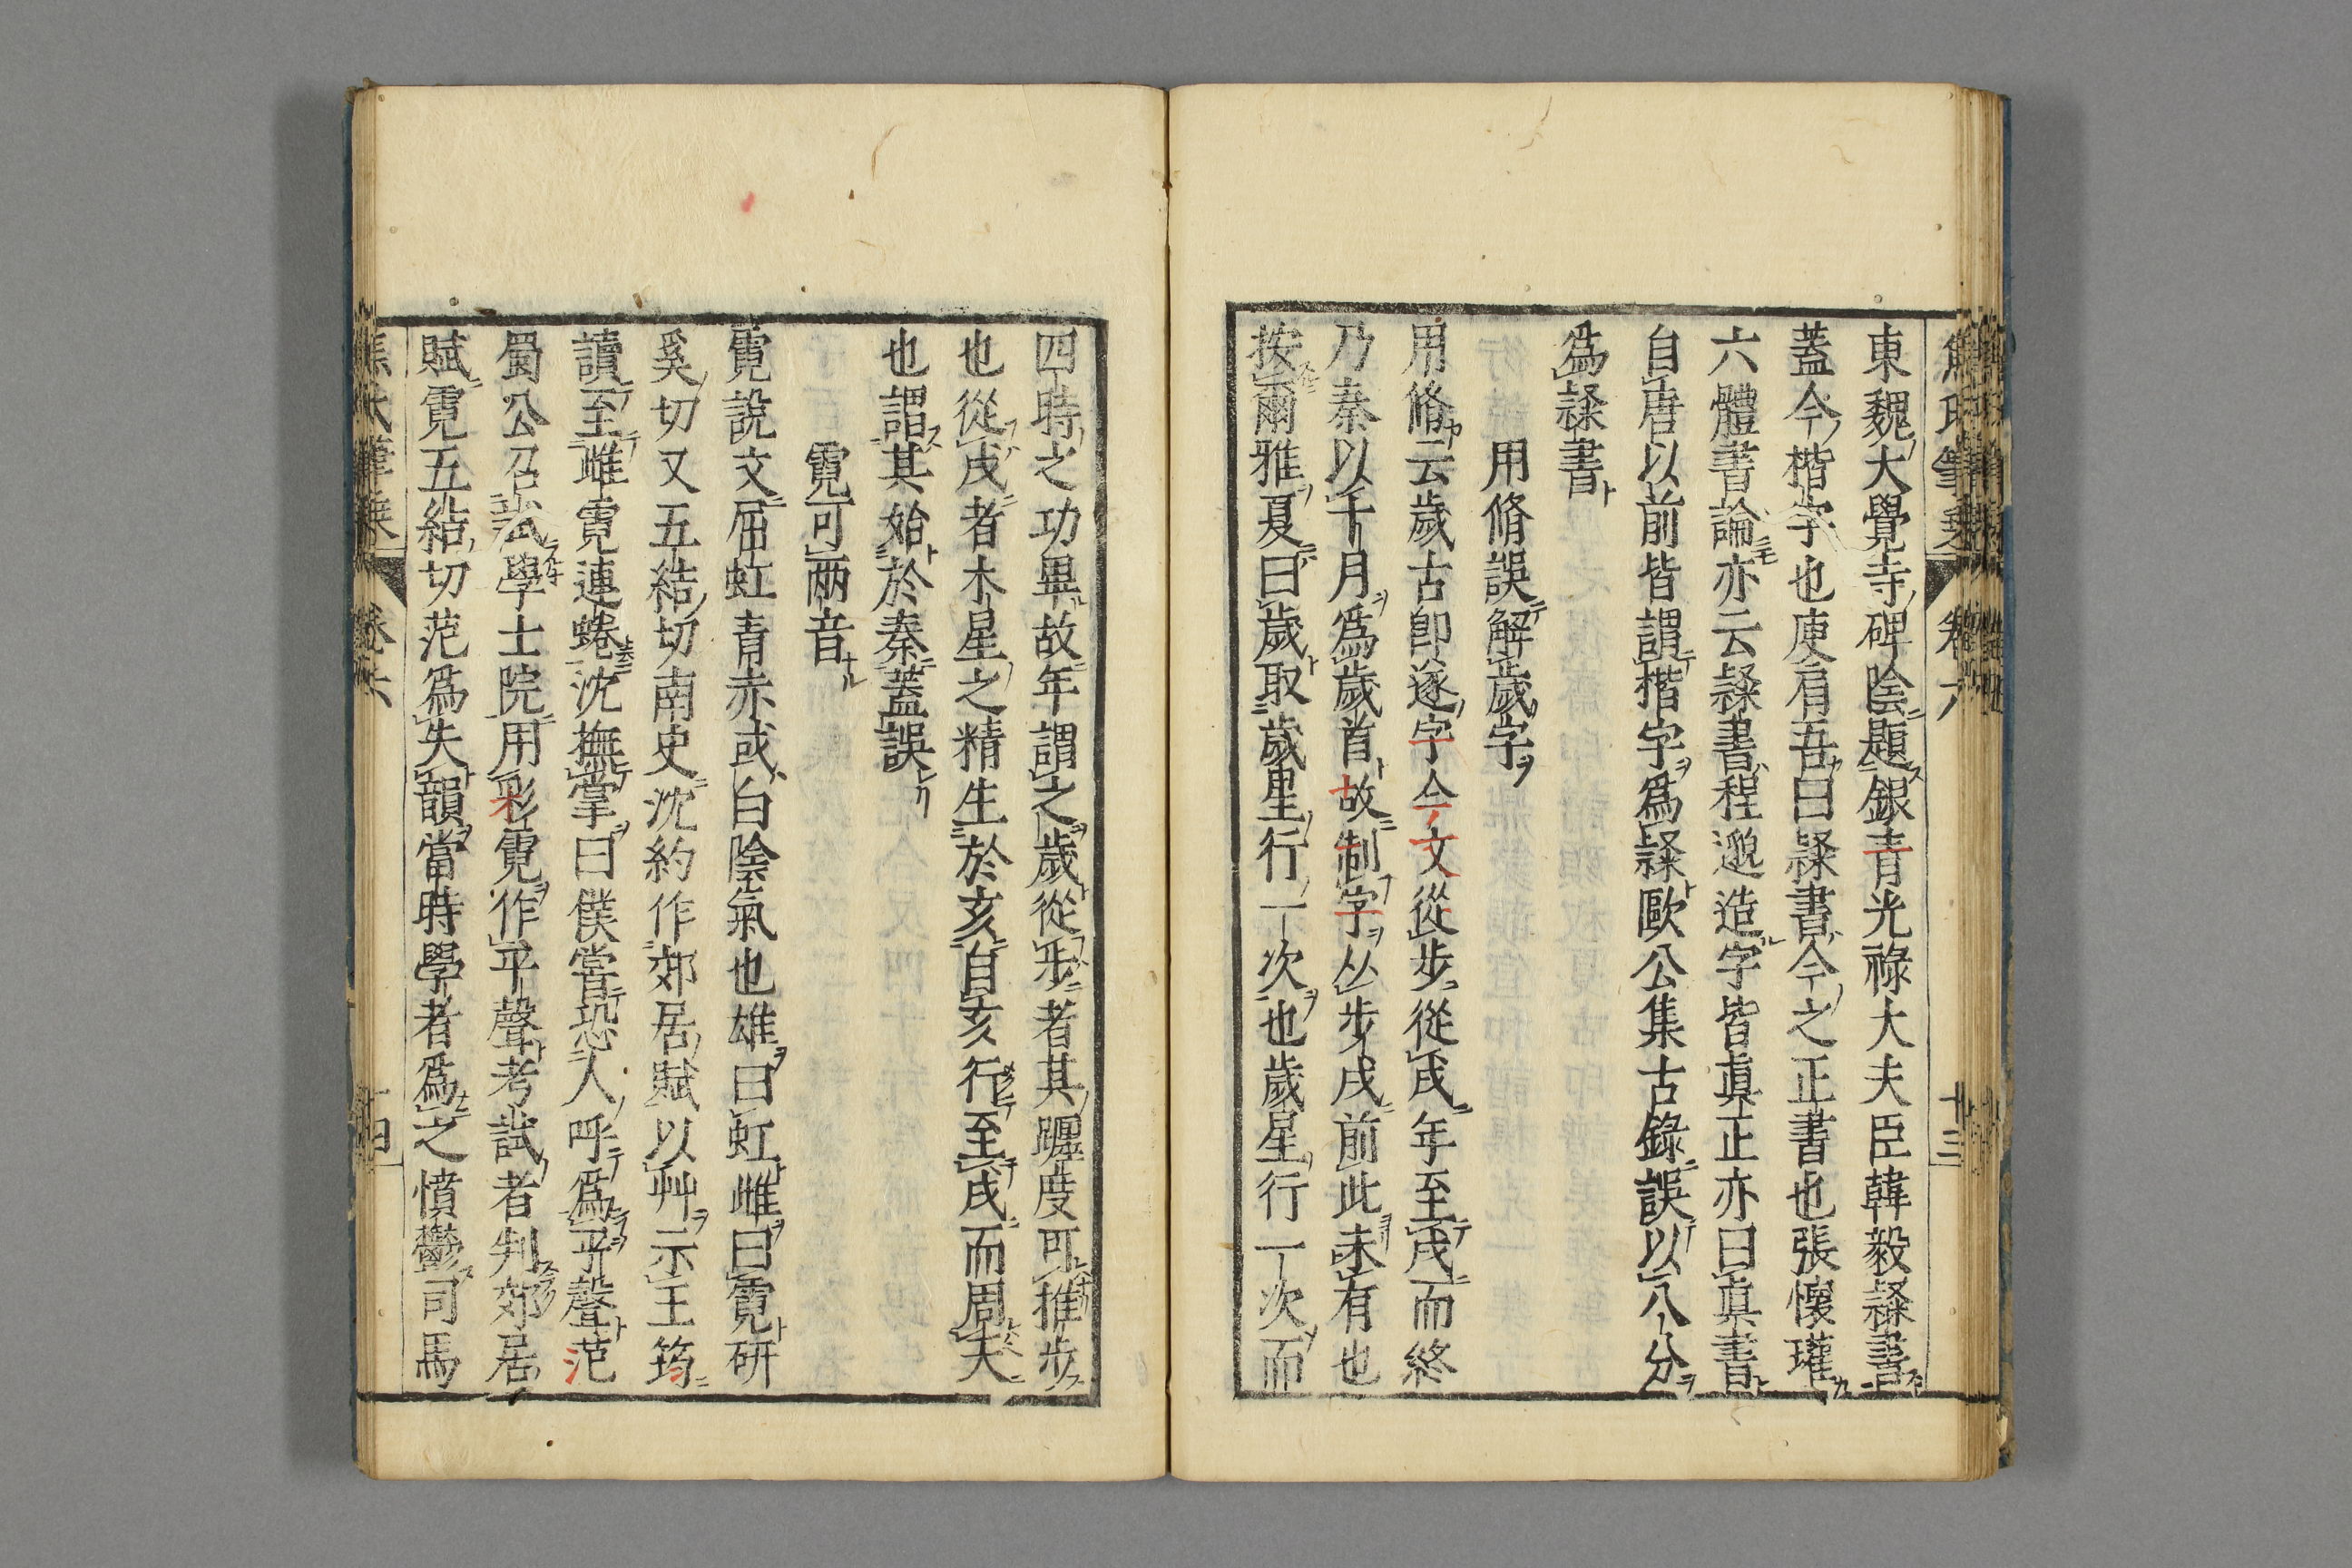 東魏大覺寺碑陰題銀青光祿大夫臣韓毅隸書
蓋今楷字也庾肩吾曰隸書今之正書也張懷瓘
六體書論亦云隸書程邈造字皆眞正亦曰眞書
自唐以前皆謂楷字爲隸歐公集古錄誤以八分
爲隸書
用脩誤解歲字
用脩云歲古卽遂字今文從步從戌年至戌而終
乃秦以十月爲歲首故制字从步戌前此未有也
按爾雅夏曰歲取歲星行一次也歲星行一次而
四時之功畢故年謂之歲從步者其躔度可推步
也從戌者木星之精生於亥自亥行至戌而周天
也謂其始於秦蓋誤
霓可兩音
霓說文屈虹青赤或白陰氣也雄曰虹雌曰霓研
奚切又五結切南史沈約作郊居賦以艸示王筠
讀至雌霓連蜷沈撫掌曰僕嘗恐人呼爲平聲范
蜀公召試學士院用彩霓作平聲考試者判郊居
賦霓五結切范爲失韻當時學者爲之憤鬱司馬
卷六
十三